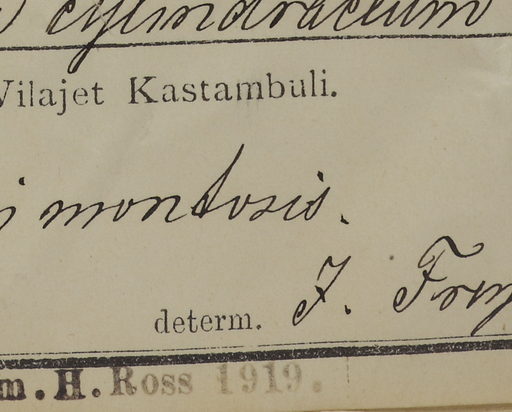 cylindraceum
Vilajet Kastambuli.
montosis.
determ. J. Frey
m. H. Ross 1919.